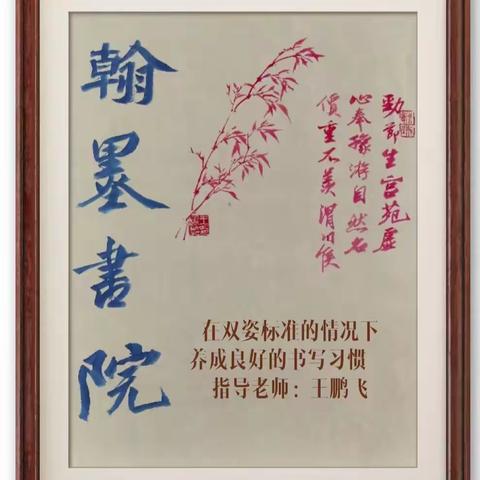 翰墨書院
勁節生宫苑虚
心奉豫游自然名
價重不羡渭川侯
在双姿标准的情况下
养成良好的书写习惯
指导老师：王鹏飞